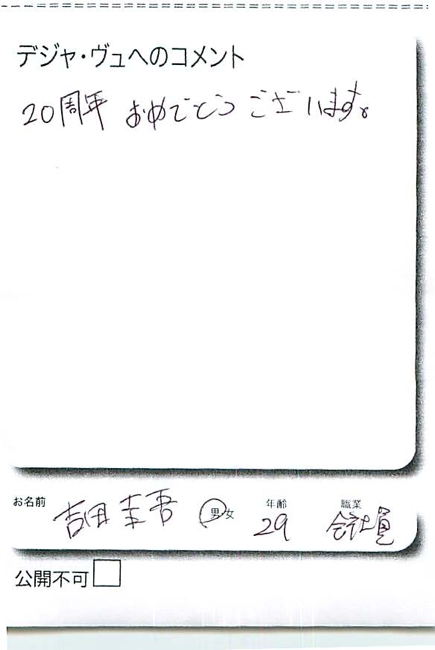 デジャ・ヴュへのコメント
20周年 おめでとうございます。
お名前 吉田圭吾 男・女 年齢 29 職業 会社員
公開不可